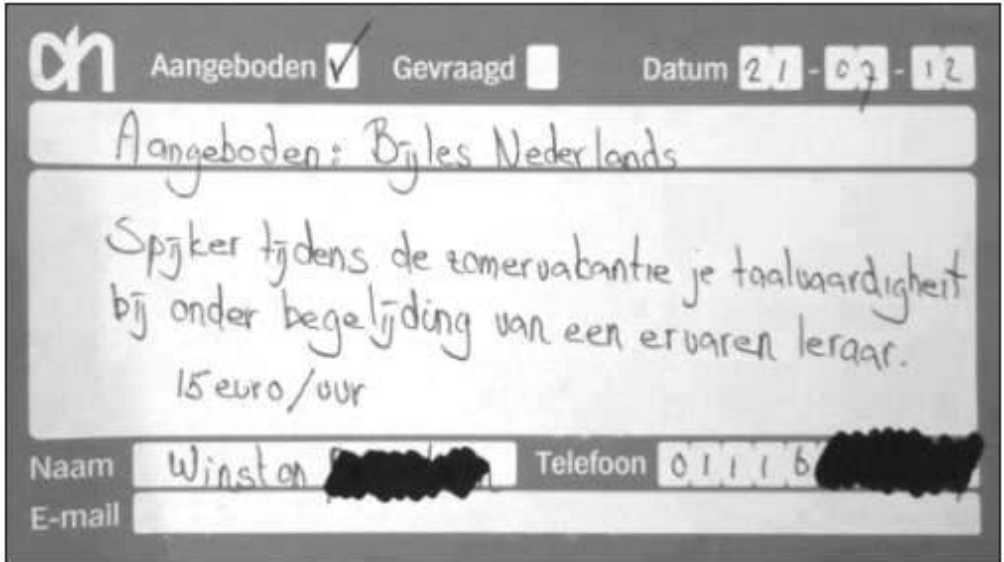 ah Aangeboden Gevraagd Datum 21 - 07 - 12
Aangeboden: Bijles Nederlands
Spijker tijdens de zomervakantie je taalvaardigheit
bij onder begelijding van een ervaren leraar.
15 euro/uur
Naam Winston Telefoon 01116
E-mail